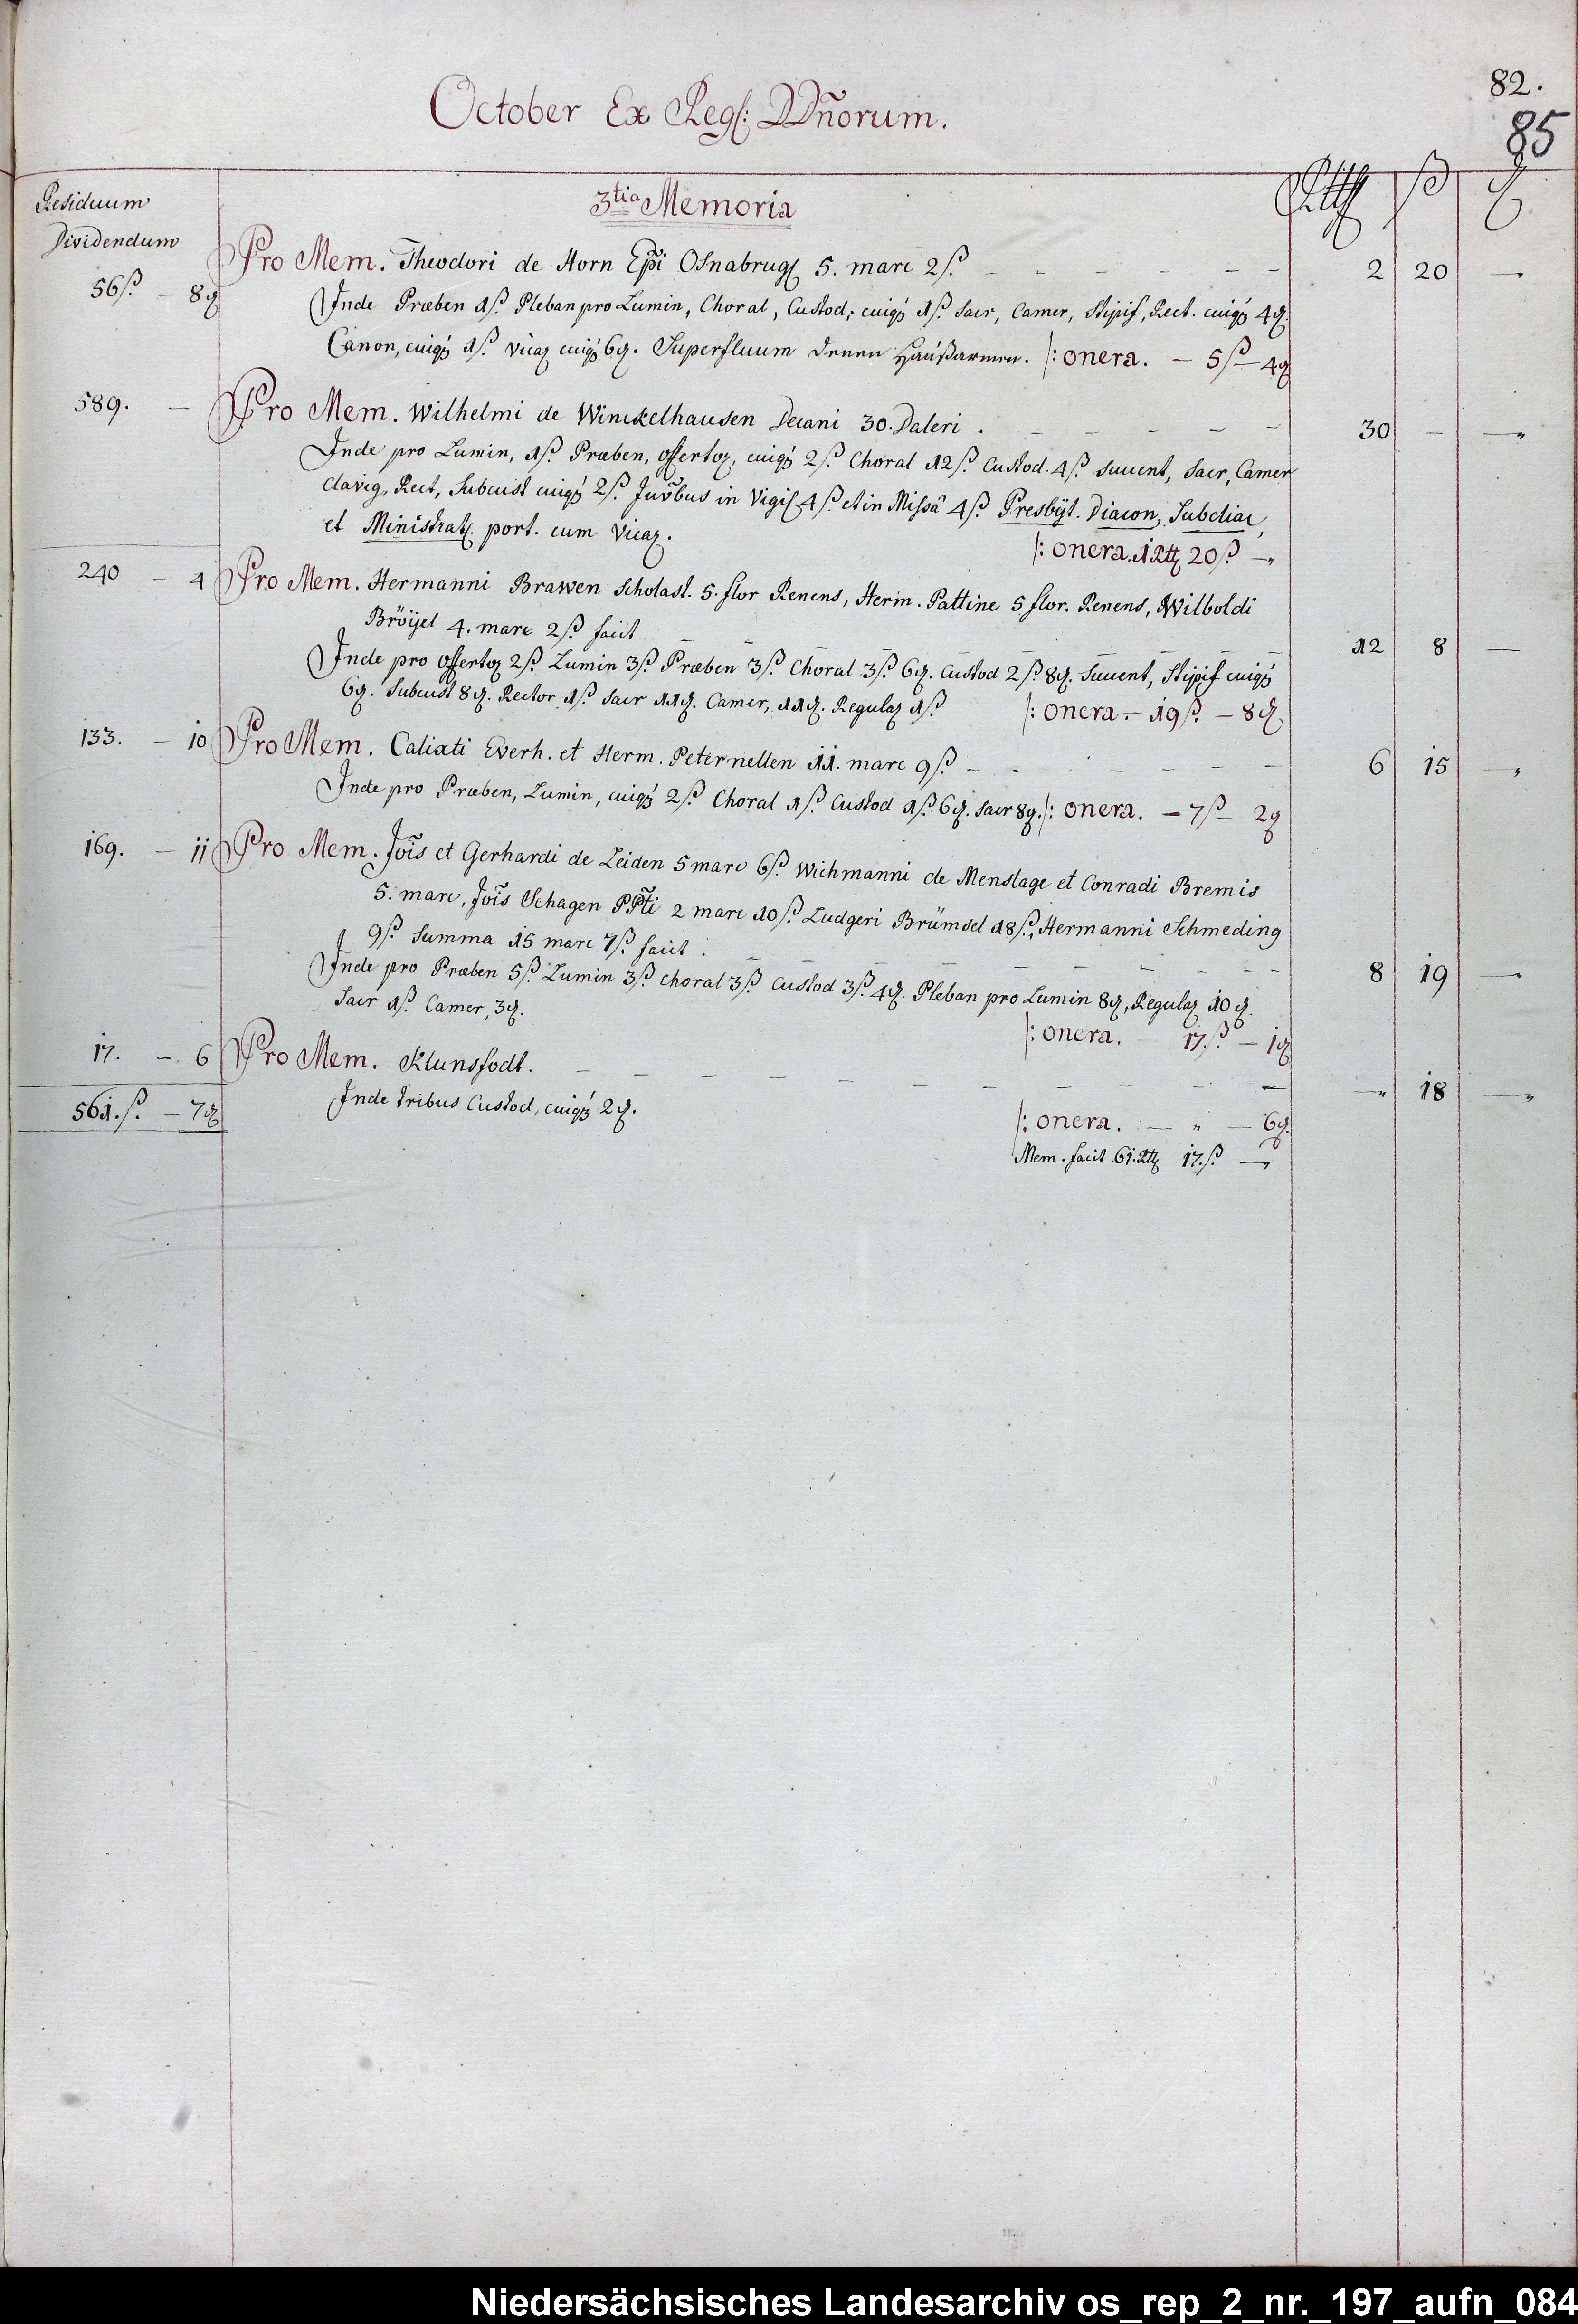 82.
October Ex Regs: DDñorum.
85
Residuum
Dividendum
3tia Memoria
Rtlr ß ₰
Pro Mem. Theodori de Horn Epĩ Osnabrug. 5. marc 2ß. – – – – – – 2 20 —
56ß. – 8₰
Inde Præben 1ß. Pleban pro Lumin, Choral, Custod; cuiq3 1ß. Sacr, Camer, Stipif, Rect. cuiq3 4₰.
Canon, cuiq3 1ß. Vicaz cuiq3 6₰. Superfluum denen Haußarmen. /: onera. – 5ß – 4₰
589. — Pro Mem. Wilhelmi de Winckelhausen Decani 30. Daleri . – – – – – 30 – —
Inde pro Lumin, 1ß. Præben, offertoz, cuiq3 2ß. Choral 12ß. Custod. 4ß. Succent, Sacr, Camer
clavig, Rect, Subcust cuiq3 2ß. Juv̄bus in Vigil 4ß. et in Missâ 4ß. Presbÿt. Diacon, Subdiac,
et Ministrat. port. cum Vicaz.
/: onera. 1 Rtlr 20ß. —
240 – 4 Pro Mem. Hermanni Brawen Scholast. 5. flor Renens, Herm. Pattine 5 flor. Renens, Wilboldi
Bröijel 4. marc 2ß. facit – – – – – – – – – 12 8 —
Inde pro offertoz 2ß. Lumin 3ß. Præben 3ß. Choral 3ß. 6₰. Custod 2ß. 8₰. Succent, Stipif cuiq3
6₰. Subcust 8₰. Rector 1ß. Sacr 11₰. Camer, 11₰. Regulaz 1ß. /: onera. – 19ß. – 8₰
133. – 10 Pro Mem. Calixti Everh. et Herm. Peternellen 11. marc 9ß. – – – – – – – 6 15 —
Inde pro Præben, Lumin, cuiq3 2ß. Choral 1ß. Custod 1ß. 6₰. Sacr 8₰. /: onera. – 7ß – 2₰
169. – 11 Pro Mem. Jõis et Gerhardi de Leiden 5 marc 6ß. Wichmanni de Menslage et Conradi Bremis
5. marc, Jõis Schagen PP̃ti 2 marc 10ß. Ludgeri Brümsel 18ß., Hermanni Schmeding
9ß. Summa 15 marc 7ß. facit . – – – – – – – – 8 19 —
Inde pro Præben 5ß. Lumin 3ß. Choral 3ß. Custod 3ß. 4₰. Pleban pro Lumin 8₰, Regulaz 10₰.
Sacr 1ß. Camer, 3₰.
/: onera. 17.ß. – 1₰
17. – 6 Pro Mem. Klunsfodt. – – – – – – – – – – – — 18 —
561.ß. – 7₰
Inde tribus Custod, cuiq3 2₰.
/: onera. — „ — 6₰.
Mem. facit 61. Rtlr 17.ß. —
Niedersächsisches Landesarchiv os_rep_2_nr._197_aufn_084